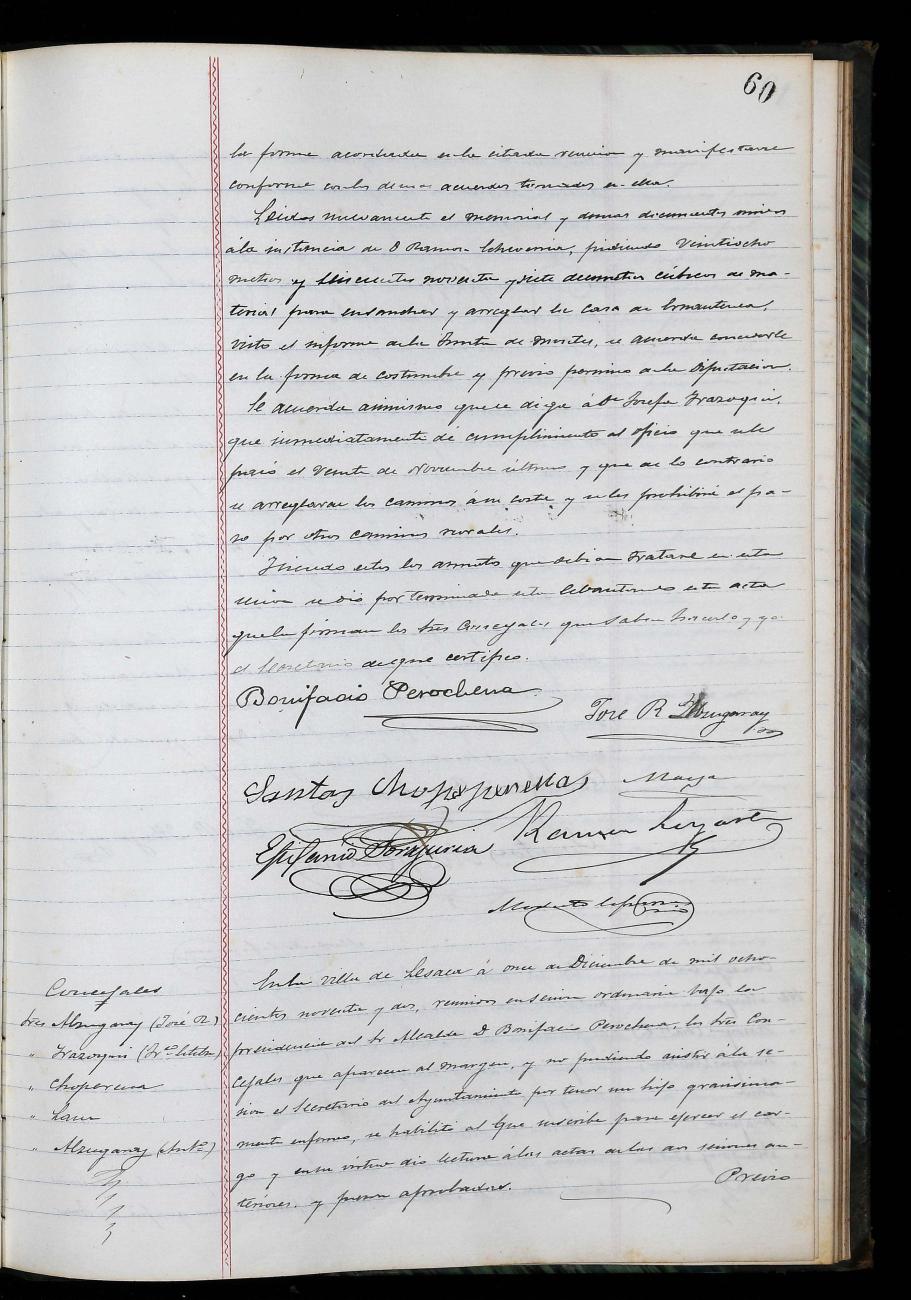 60
la forma acordada en la citada reunion y manifestarse
conforme con los demas acuerdos tomados en ella.
Leidos nuevamente el memorial y demas documentos unidos
á la instancia de D Ramon Echeverria, pidiendo Veintiocho
metros y seiscientos noventa y siete decimetros cúbicos de ma-
terial para ensanchar y arreglar la casa de
visto el informe de la Junta de Montes, se acuerda concederle
en la forma de costumbre y previo permiso de la Diputacion.
Se acuerda asimismo que se diga á Dª Josefa Irazoqui,
que inmediatamente dé cumplimiento al oficio que se le
pasó el Veinte de Noviembre último y que de lo contrario
se arreglaran los caminos á su costa y se les prohibirá el pa-
so por otros caminos vecinales.
Siendo estos los asuntos que debian tratarse en esta
sesion se dió por terminada esta lebantando esta acta
que la firman los Sres Concejales que saben hacerlo y yo
el Secretario de que certifico.
Bonifacio Perochena
José R Alzugaray
Santos Choperena
Maya
Epifanio
Ramon
Modesto
Concejales
Sres Alzugaray (José R.)
" Irazoqui (Frco Esteban)
" Choperena
"
" Alzugaray (Antº)
En la Villa de Lesaca á once de Diciembre de mil ocho-
cientos noventa y dos, reunidos en sesion ordinaria bajo la
presidencia del Sr Alcalde D Bonifacio Perochena, los Sres Con-
cejales que aparecen al margen, y no pudiendo asistir á la se-
sion el Secretario del Ayuntamiento por tener un hijo gravisima-
mente enfermo, se habilitó al que suscribe para ejercer el car-
go y en su virtud dió lectura á las actas de las dos sesiones an-
teriores, y fueron aprobadas.
Previo